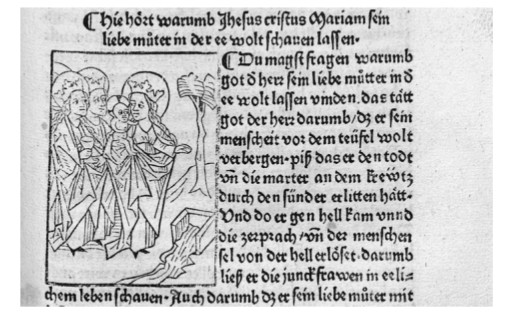 ¶ Hie hört warumb Jhesus cristus Mariam sein
liebe můter in der ee wolt schauen lassen.
¶ Du magst fragen warumb
got d̕ herr sein liebe můtter in d̕
ee wolt lassen vinden. das tätt
got der herr darumb / dz er sein
menscheit vor dem teüfel wolt
verbergen. piß das er den todt
vn̄ die marter an dem krewtz
durch den sünder erlitten hätt.
Vnd do er gen hell kam vnnd
die zerprach / vn̄ der menschen
sel von der hell erlöset. darumb
ließ er die junckfrawen in eeli⸗
chem leben schauen. Auch darumb dz er sein liebe můter mit